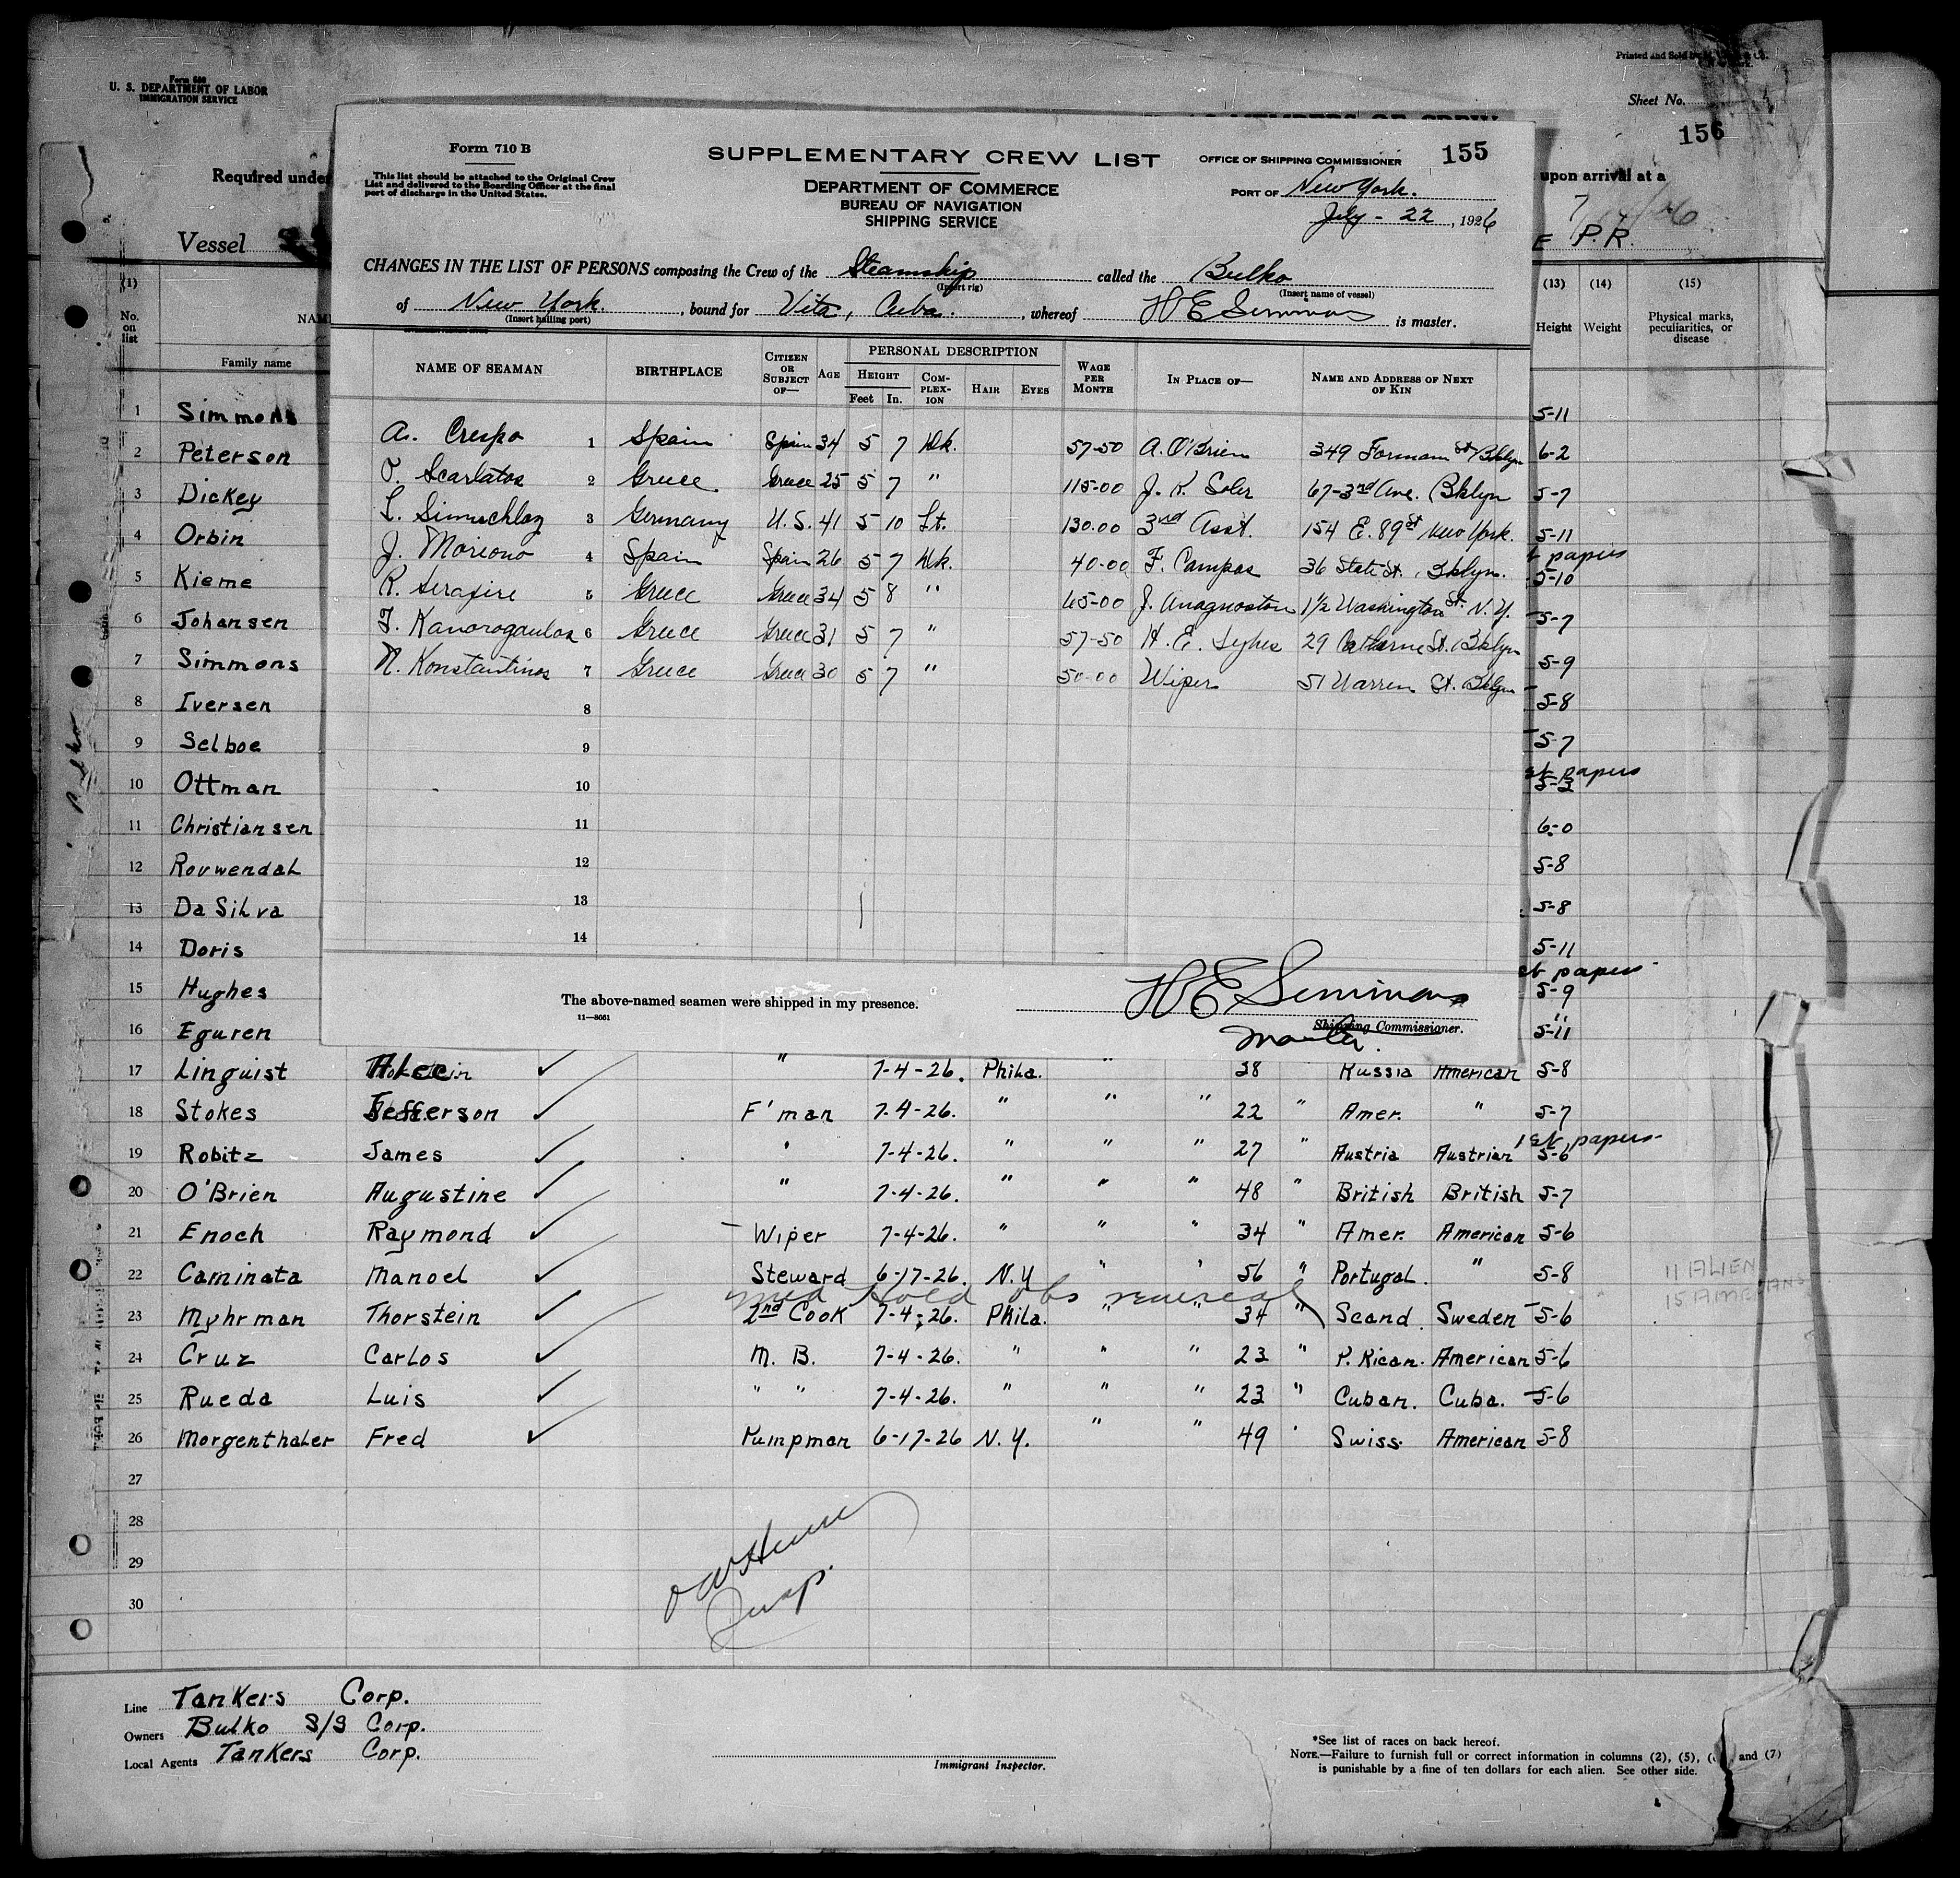 Form 680
U. S. DEPARTMENT OF LABOR
IMMIGRATION SERVICE
Printed and Sold by
Sheet No.
156
Required under
upon arrival at a
Vessel
E P.R.
Form 710 B
This list should be attached to the Original Crew
List and delivered to the Boarding Officer at the final
port of discharge in the United States.
SUPPLEMENTARY CREW LIST
DEPARTMENT OF COMMERCE
BUREAU OF NAVIGATION
SHIPPING SERVICE
OFFICE OF SHIPPING COMMISSIONER 155
PORT OF New York.
July - 22, 1926
CHANGES IN THE LIST OF PERSONS composing the Crew of the Steamship called the Bulko
(Insert rig) (Insert name of vessel)
of New York. , bound for Vita, Cuba. , whereof H E Simmons is master.
(Insert hailing port)
NAME OF SEAMAN BIRTHPLACE CITIZEN OR SUBJECT OF— AGE PERSONAL DESCRIPTION HEIGHT Feet In. COMPLEXION HAIR EYES WAGE PER MONTH IN PLACE OF— NAME AND ADDRESS OF NEXT OF KIN
A. Crespo 1 Spain Spain 34 5 7 Dk. 57-50 A. O'Brien 349 Formann St Bklyn
P. Scarlatos 2 Greece Greece 25 5 7 " 115-00 J. K. Soler 67-3rd Ave. Bklyn
L. 3 Germany U.S. 41 5 10 Lt. 130.00 3rd Asst. 154 E. 89 St New York.
J. Moriono 4 Spain Spain 26 5 7 Dk. 40-00 F. Campos 36 State St. Bklyn.
R. Serafire 5 Greece Greece 34 5 8 " 65-00 J. Anagnoston 1 1/2 Washington St. N.Y.
6 Greece Greece 31 5 7 " 57-50 H. E. Sykes 29 Catherine St. Bklyn
N. Konstantinos 7 Greece Greece 30 5 7 " 50-00 Wiper 51 Warren St. Bklyn
8
9
10
11
12
13
14
The above-named seamen were shipped in my presence.
11—8661
H E Simmons
Shipping Commissioner.
Master.
(1) (13) (14) (15)
No. on list
NAM
Family name
Height Weight Physical marks, peculiarities, or disease
1 Simmons 5-11
2 Peterson 6-2
3 Dickey 5-7
4 Orbin 5-11
papers
5 Kieme 5-10
6 Johansen 5-7
7 Simmons 5-9
8 Iversen 5-8
9 Selboe 5-7
st papers
10 Ottman 5-3
11 Christiansen 6-0
12 Rouwendal 5-8
13 DaSilva 5-8
14 Doris 5-11
st papers
15 Hughes 5-9
16 Eguren 5-11
17 Linguist Alec " 7-4-26. Phila. " 38 Russia American 5-8
18 Stokes Jefferson F'man 7-4-26. " " " 22 " Amer. " 5-7
1st papers
19 Robitz James " 7-4-26. " " " 27 " Austria Austrian 5-6
20 O'Brien Augustine " 7-4-26. " " " 48 " British British 5-7
21 Enoch Raymond Wiper 7-4-26. " " " 34 " Amer. American 5-6
22 Caminata Manoel Steward 6-17-26. N.Y " " 56 " Portugal. " 5-8
11 ALIEN
15 AMERICANS
med Hold obs venereal
23 Myhrman Thorstein 2nd Cook 7-4-26. Phila. " " 34 " Scand. Sweden 5-6
24 Cruz Carlos M. B. 7-4-26. " " " 23 " P. Rican. American 5-6
25 Rueda Luis " " 7-4-26. " " " 23 " Cuban. Cuba. 5-6
26 Morgenthaler Fred Pumpman 6-17-26 N.Y. " " 49 " Swiss. American 5-8
27
28
29
30
Insp.
Line Tankers Corp.
Owners Bulko S/S Corp.
Local Agents Tankers Corp.
Immigrant Inspector.
*See list of races on back hereof.
NOTE.—Failure to furnish full or correct information in columns (2), (5), ( and (7)
is punishable by a fine of ten dollars for each alien. See other side.